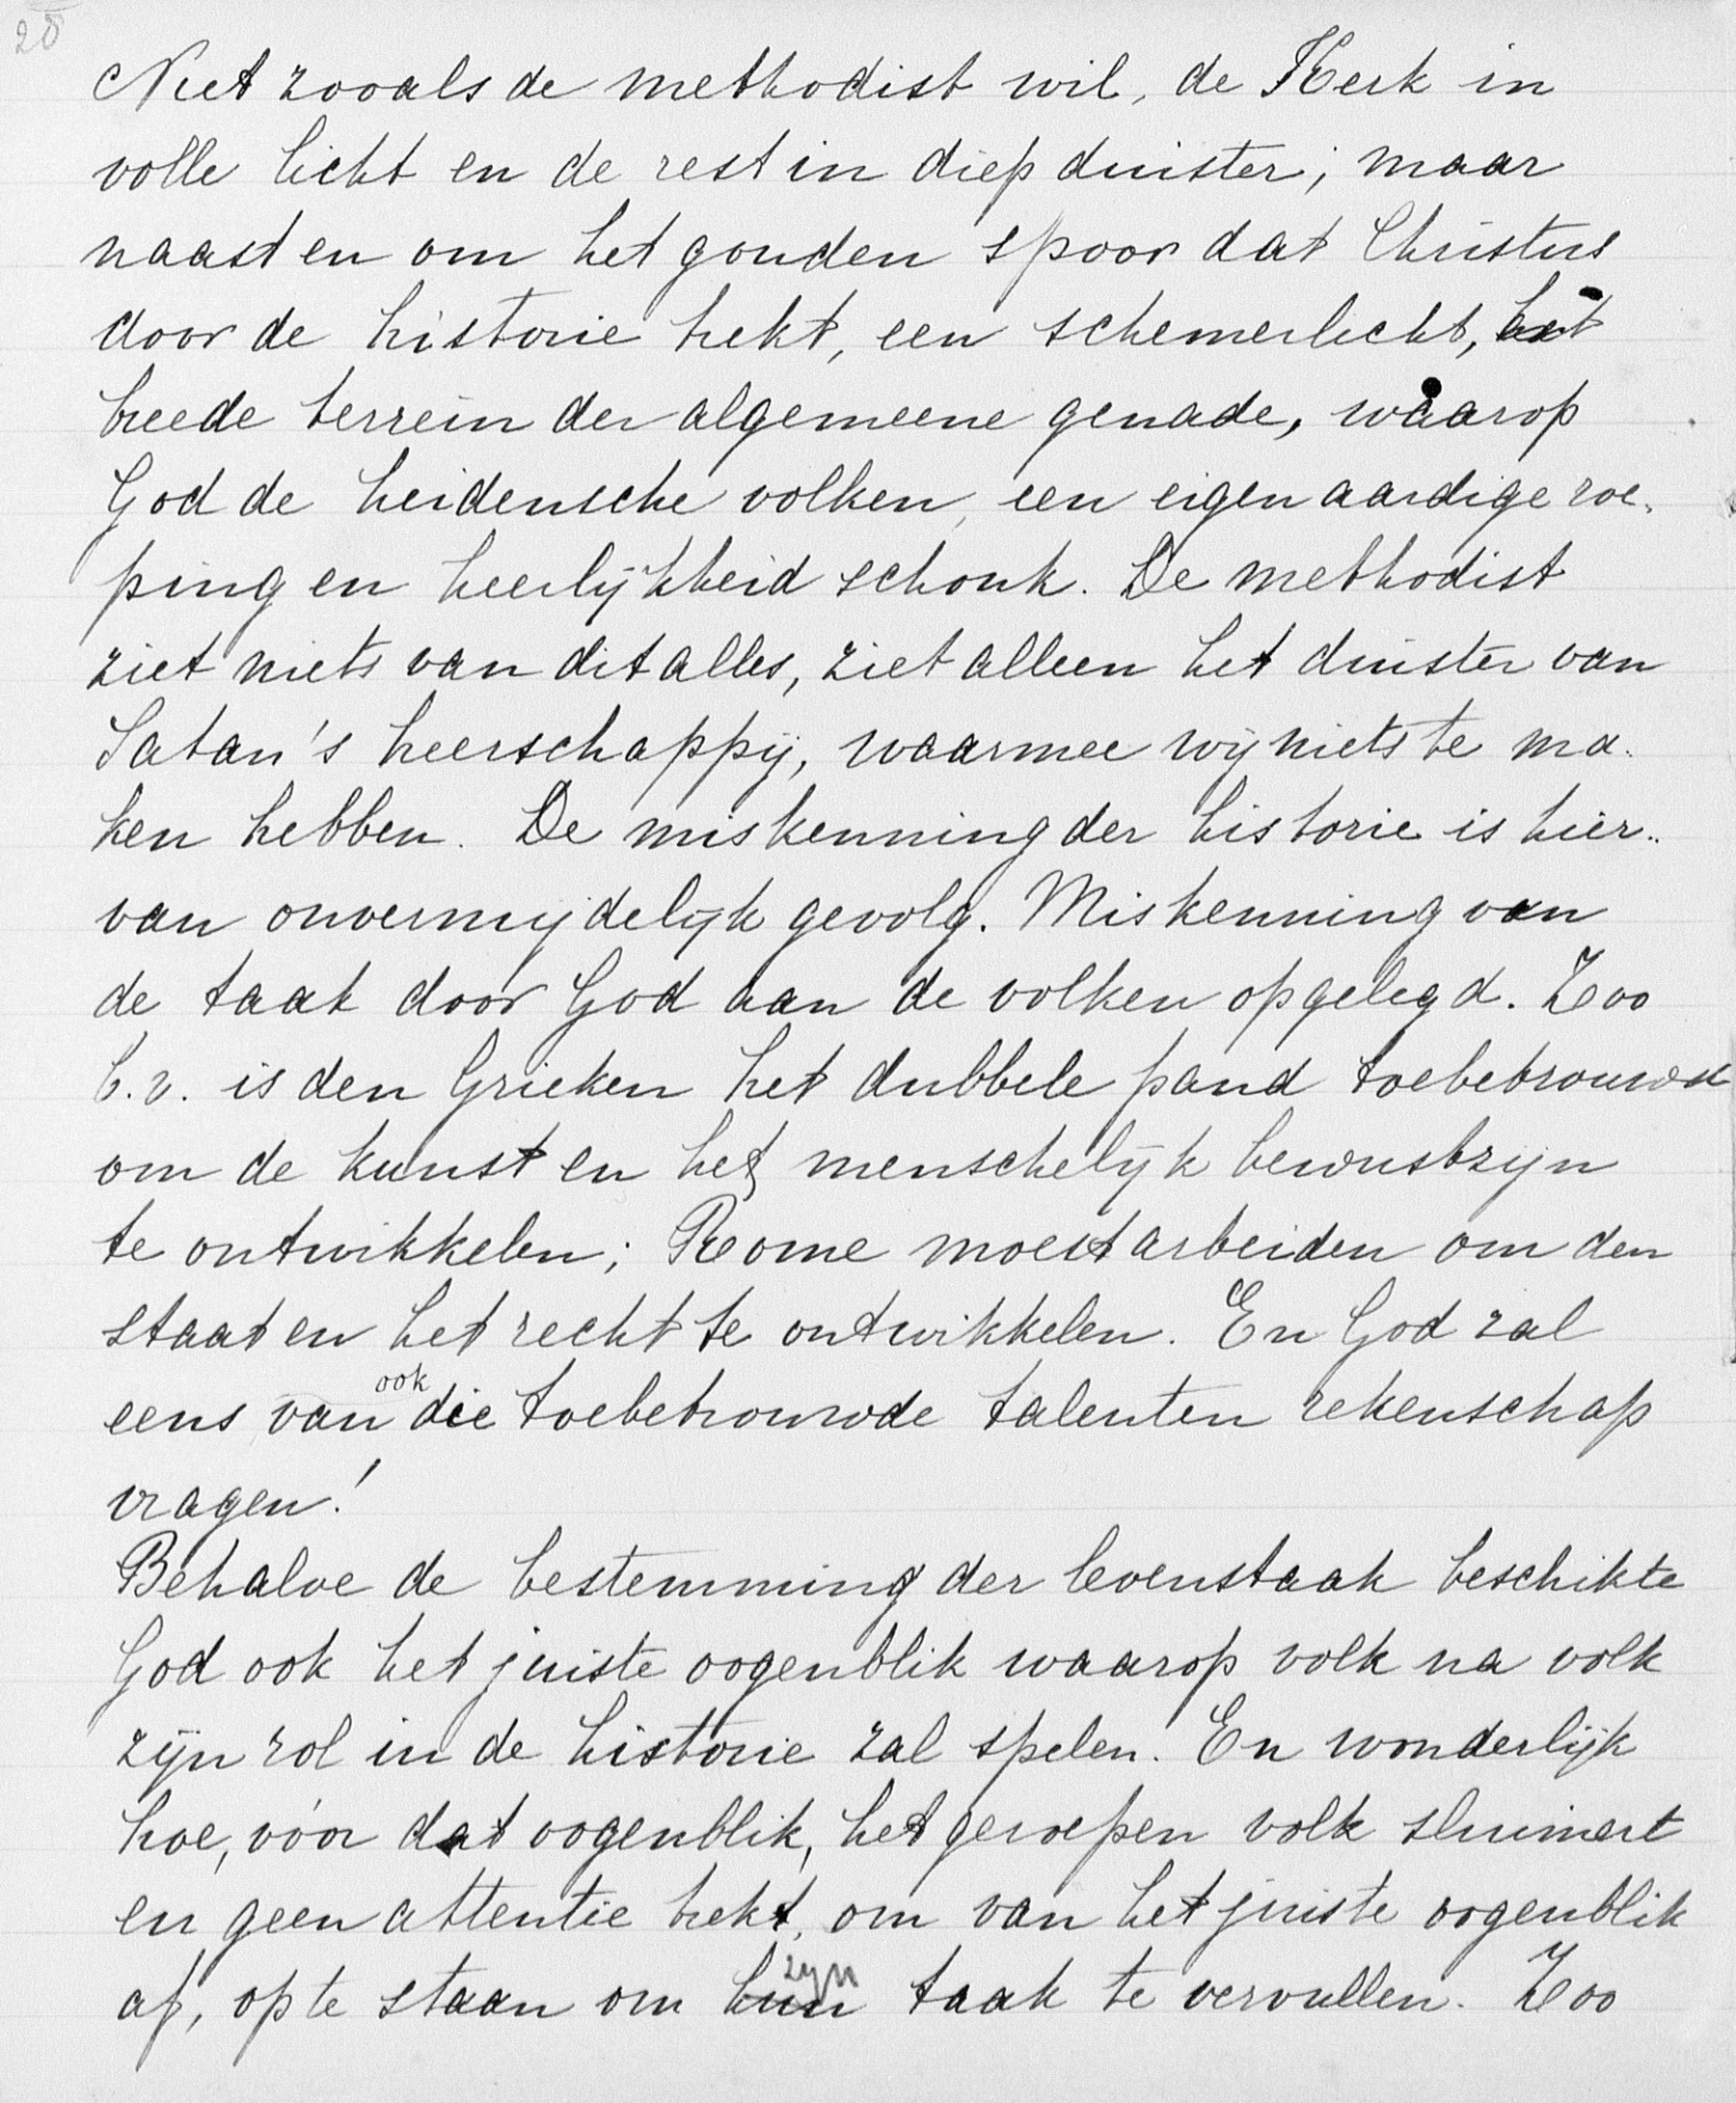 28
Niet zooals de methodist wil, de Kerk in
volle licht en de rest in diep duister; maar
naast en om het gouden spoor dat Christus
door de historie trekt, een schemerlicht, het
breede terrein der algemeene genade, waarop
God de heidensche volken, een eigenaardige roe-
ping en heerlijkheid schonk. De methodist
ziet niets van dit alles, ziet alleen het duister van
Satan's heerschappij, waarmee wij niets te ma-
ken hebben. De miskenning der historie is hier-
van onvermijdelijk gevolg. Miskenning van
de taak door God aan de volken opgelegd. Zoo
b.v. is den Grieken het dubbele pand toebetrouwd
om de kunst en het menschelijk bewustzijn
te ontwikkelen; Rome moest arbeiden om den
staat en het recht te ontwikkelen. En God zal
eens van ook die toebetrouwde talenten rekenschap
vragen!
Behalve de bestemming der levenstaak beschikte
God ook het juiste oogenblik waarop volk na volk
zijn rol in de historie zal spelen. En wonderlijk
hoe, vóór dat oogenblik, het geroepen volk sluimert
en geen attentie trekt, om van het juiste oogenblik
af, op te staan om hun zijn taak te vervullen. Zoo